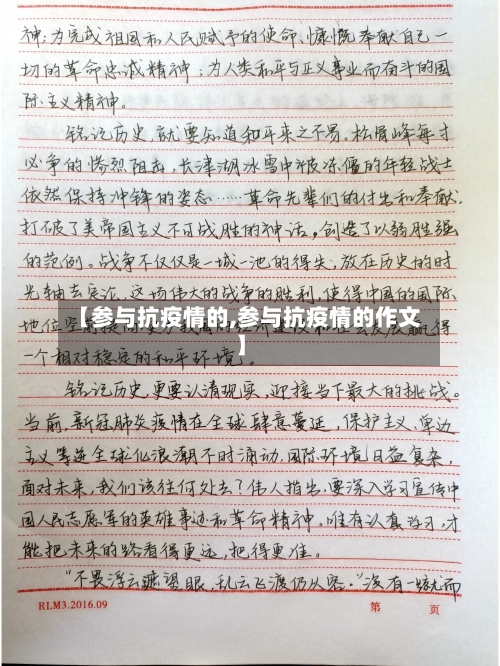 神；为完成祖国和人民赋予的使命、慷慨奉献自己一
切的革命忠诚精神；为人类和平与正义事业而奋斗的国
际主义精神。
铭记历史，就要知道和平来之不易。松骨峰每寸
必争的惨烈阻击，长津湖冰雪中被冻僵的年轻战士
依然保持冲锋的姿态……革命先辈们的付出和奉献，
打破了美帝国主义不可战胜的神话，创造了以弱胜强
的范例。战争不仅仅是一城一池的得失，放在历史的时
光轴去定论，这场伟大的战争的胜利，使得中国的国际
地位空前
【参与抗疫情的,参与抗疫情的作文
】
得
一个相对稳定的和平环境。
铭记历史，更要认清现实，迎接当下最大的挑战。
当前，新冠肺炎疫情在全球肆意蔓延，保护主义、单边
主义等逆全球化浪潮不时涌动，国际环境日益复杂，
面对未来，我们该往何处去？伟人指出，要深入学习宣传中
国人民志愿军的英雄事迹和革命精神。唯有认真学习，才
能把未来的路看得更远，把得更准。
“不畏浮云遮望眼，乱云飞渡仍从容。”没有一蹴而
RLM3.2016.09
第 页